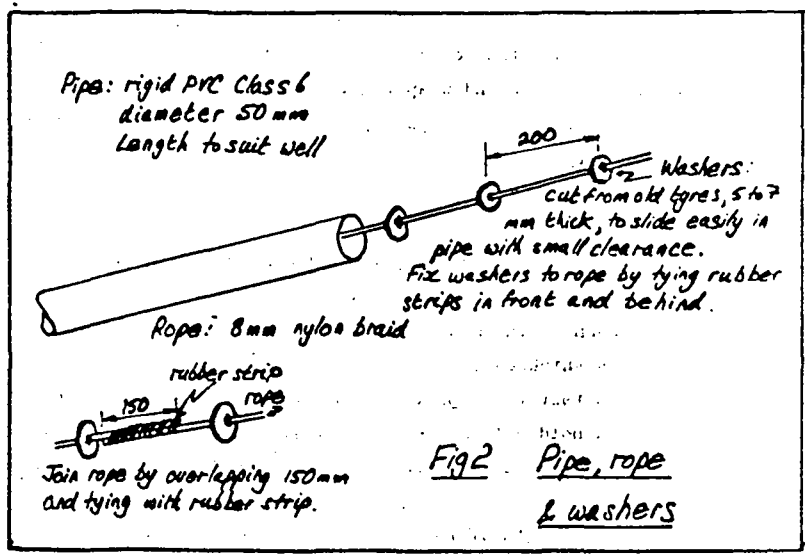 Pipe: rigid PVC Class 6
diameter 50 mm
Length to suit well
200
Washers:
cut from old tyres, 5 to 7
mm thick, to slide easily in
pipe with small clearance.
Fix washers to rope by tying rubber
strips in front and behind.
Rope: 8mm nylon braid
rubber strip
150
rope
Join rope by overlapping 150mm
and tying with rubber strip.
Fig 2 Pipe, rope
& washers